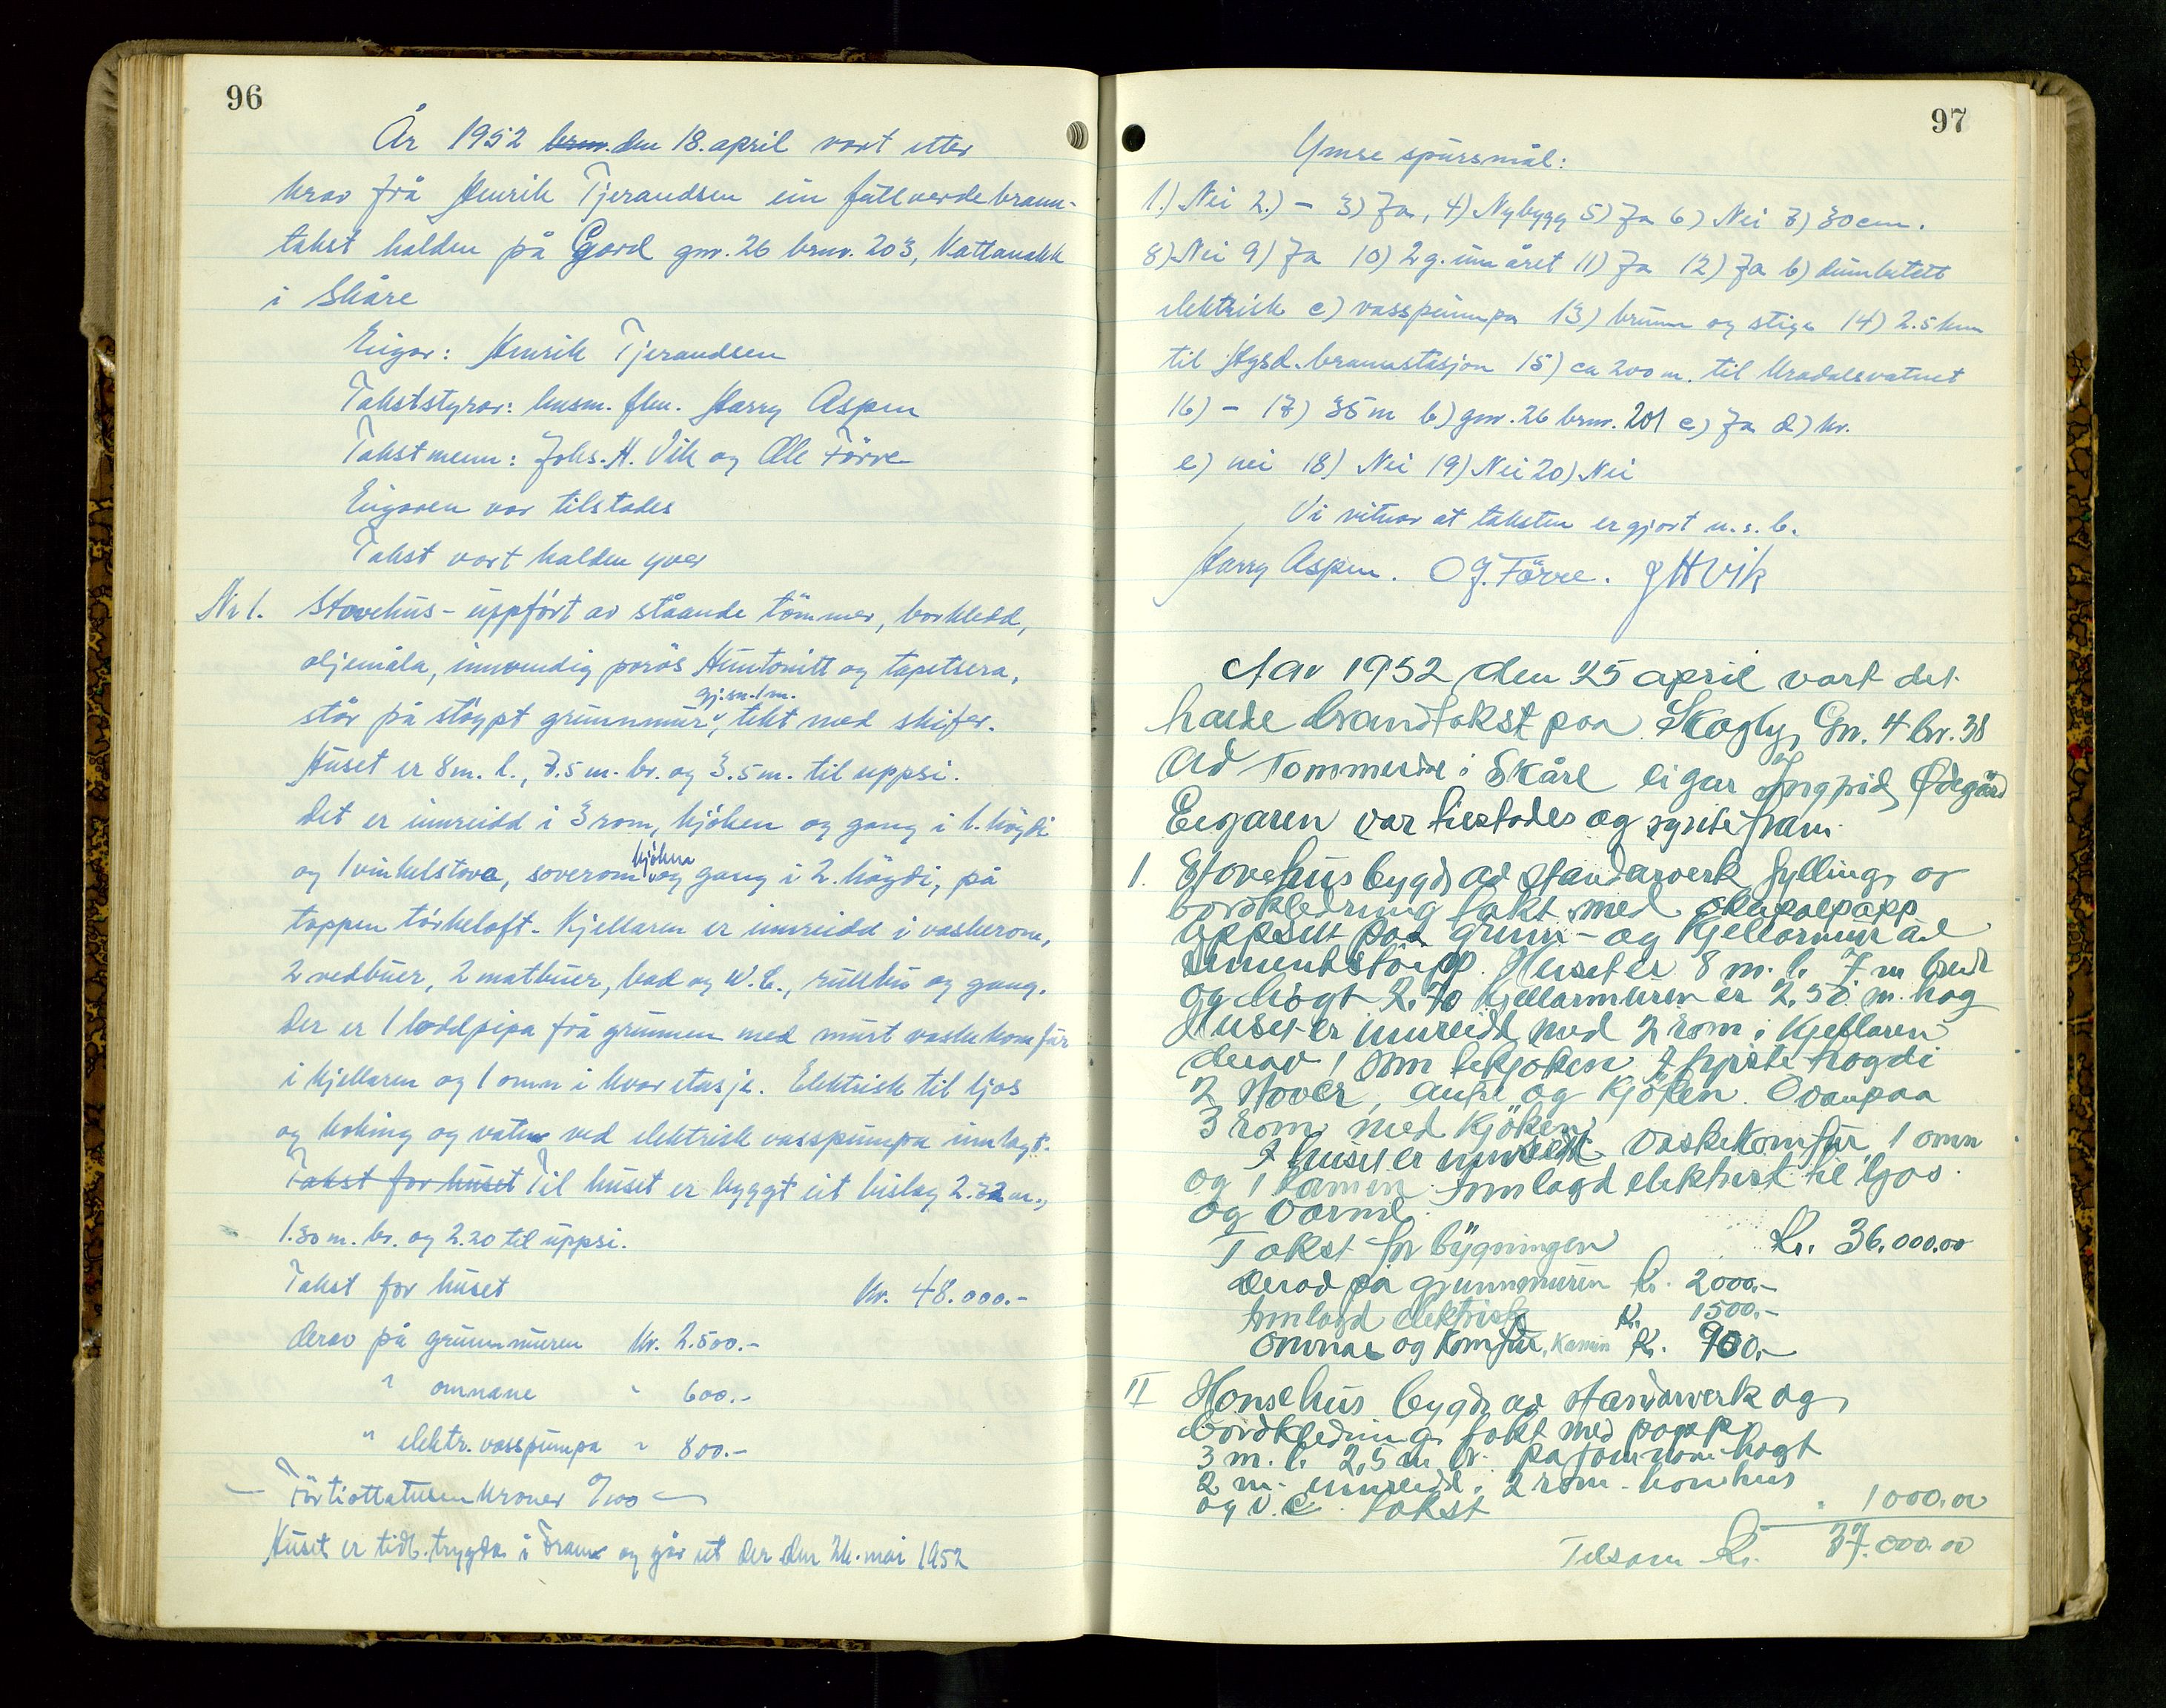 96
År 1952 den 18. april vart etter
krav frå Henrik Tjerandsen ein fullverdebrann-
takst halden på Gard gnr. 26 brnr. 203, Kattanakk
i Skåre
Eigar: Henrik Tjerandsen
Takststyrar: lensm. flm. Harry Aspen
Takstmenn: Johs. H. Vik og Ole Förre
Eigaren var tilstades
Takst vart halden yver
Nr 1. Stovehus - uppført av ståande tömmer, borkledd,
oljemåla, innvendig porös Huntonitt og tapetsera,
står på stöypt grunnmur gj.sn. 1 m., tekt med skifer.
Huset er 8 m. l., 7.5 m. br. og 3.5 m. til uppsi.
Det er innreidd i 3 rom, kjöken og gang i 1. högdi
og 1 vinkelstova, soverom kjöken og gang i 2. högdi, på
toppen törkeloft. Kjellaren er innreidd i vaskerom,
2 vedbuer, 2 matbuer, bad og W.C., rullbu og gang.
Der er 1 loddpipa frå grunnen med murt vaskekomfur
i kjellaren og 1 omn i kvar etasje. Elektrisk til ljos
og koking og vatn ved elektrisk vasspumpa innlagt.
Takst for huset Til huset er byggt eit bislag 2.32 m.,
1.30 m. br. og 2.20 til uppsi.
Takst for huset Kr. 48.000.-
Derav på grunnmuren Kr. 2.500.-
" omnane " 600.-
" elektr. vasspumpa " 800.-
- Förtiottatusen kroner 0/100 -
Huset er tidl. trygda i Fram og går ut der den 26. mai 1952
97
Ymse spursmål:
1.) Nei 2.) - 3) Ja, 4) Nybygg 5) Ja 6) Nei 7) 30 cm.
8) Nei 9) Ja 10) 2 g. um året 11) Ja 12) Ja b) dumbetett
elektrisk c) vasspumpa 13) brunn og stige 14) 2.5 km
til Hgsd. brannstasjon 15) ca 200 m. til Kradalsvatnet
16) - 17) 35 m b) gnr. 26 brnr. 201 c) Ja d) kr.
e) nei 18) Nei 19) Nei 20) Nei
Vi vitnar at taksten er gjort u.s.b.
Harry Aspen. O J. Förre. J H Vik
Aar 1952 den 25 april vart det
halde brandtakst paa Skogly, Gn. 4 br. 38
av Tommerdal i Skåre eigar Ingrid Ødegård
Eigaren var tilstades og synte fram
1. Stovehus bygd av standarverk fylling og
bordkledning takt med skapalpapp
uppsett paa grunn- og Kjellarmur av
sementstöypp. Huset er 8 m. l. 7 m breidt
og högt 2.70 Kjellarmuren er 2,50 m. hög
Huset er innreidt med 2 rom i Kjellaren
derav 1 som tekjöken I fyrste högdi
2 stover, antre og Kjöken. Ovanpaa
3 rom med Kjöken
I huset er innreidt vaskekomfur 1 omn
og 1 kamin innlagd elektrisk til ljos
og varme.
Takst for bygningen Kr. 36.000.00
derav på grunnmuren kr. 2000.-
innlagd elektrisk kr. 1500.-
Omnar og Komfur, Kamin kr. 900.-
II Hönsehus bygd av standarverk og
bordkledning takt med papp
3 m. l. 2,5 m br. på framsida högt
2 m. innreidd i 2 rom - hönshus
og v.c. takst " 1000.00
Tilsam Kr. 37.000.00